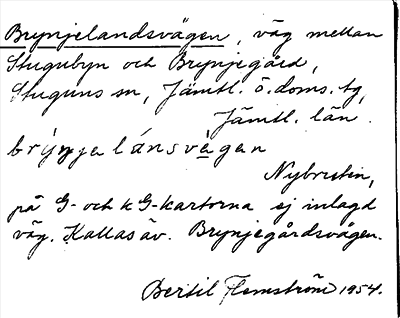 Brynjelandsvägen, väg mellan
Stugubyn och Brynjegård,
Stuguns sn, Jämtl. ö. doms. tg,
Jämtl. län.
brýnjelánsvègen
Nybrutin,
på G- och kG-kartorna ej inlagd
väg. Kallas äv. Brynjegårdsvägen.
Bertil Flemström 1954.